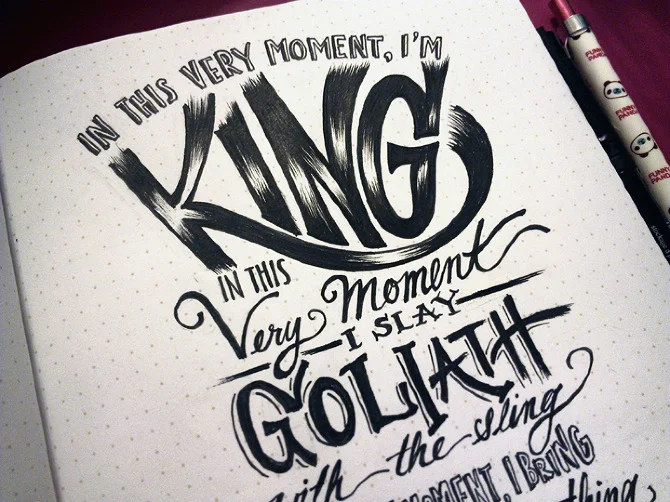 IN THIS VERY MOMENT, I'M
KING
IN THIS
Very Moment
I SLAY
GOLIATH
with the sling
MOMENT, I BRING
thing
FUNNY PANDA
FUNNY PANDA
FUNNY PANDA